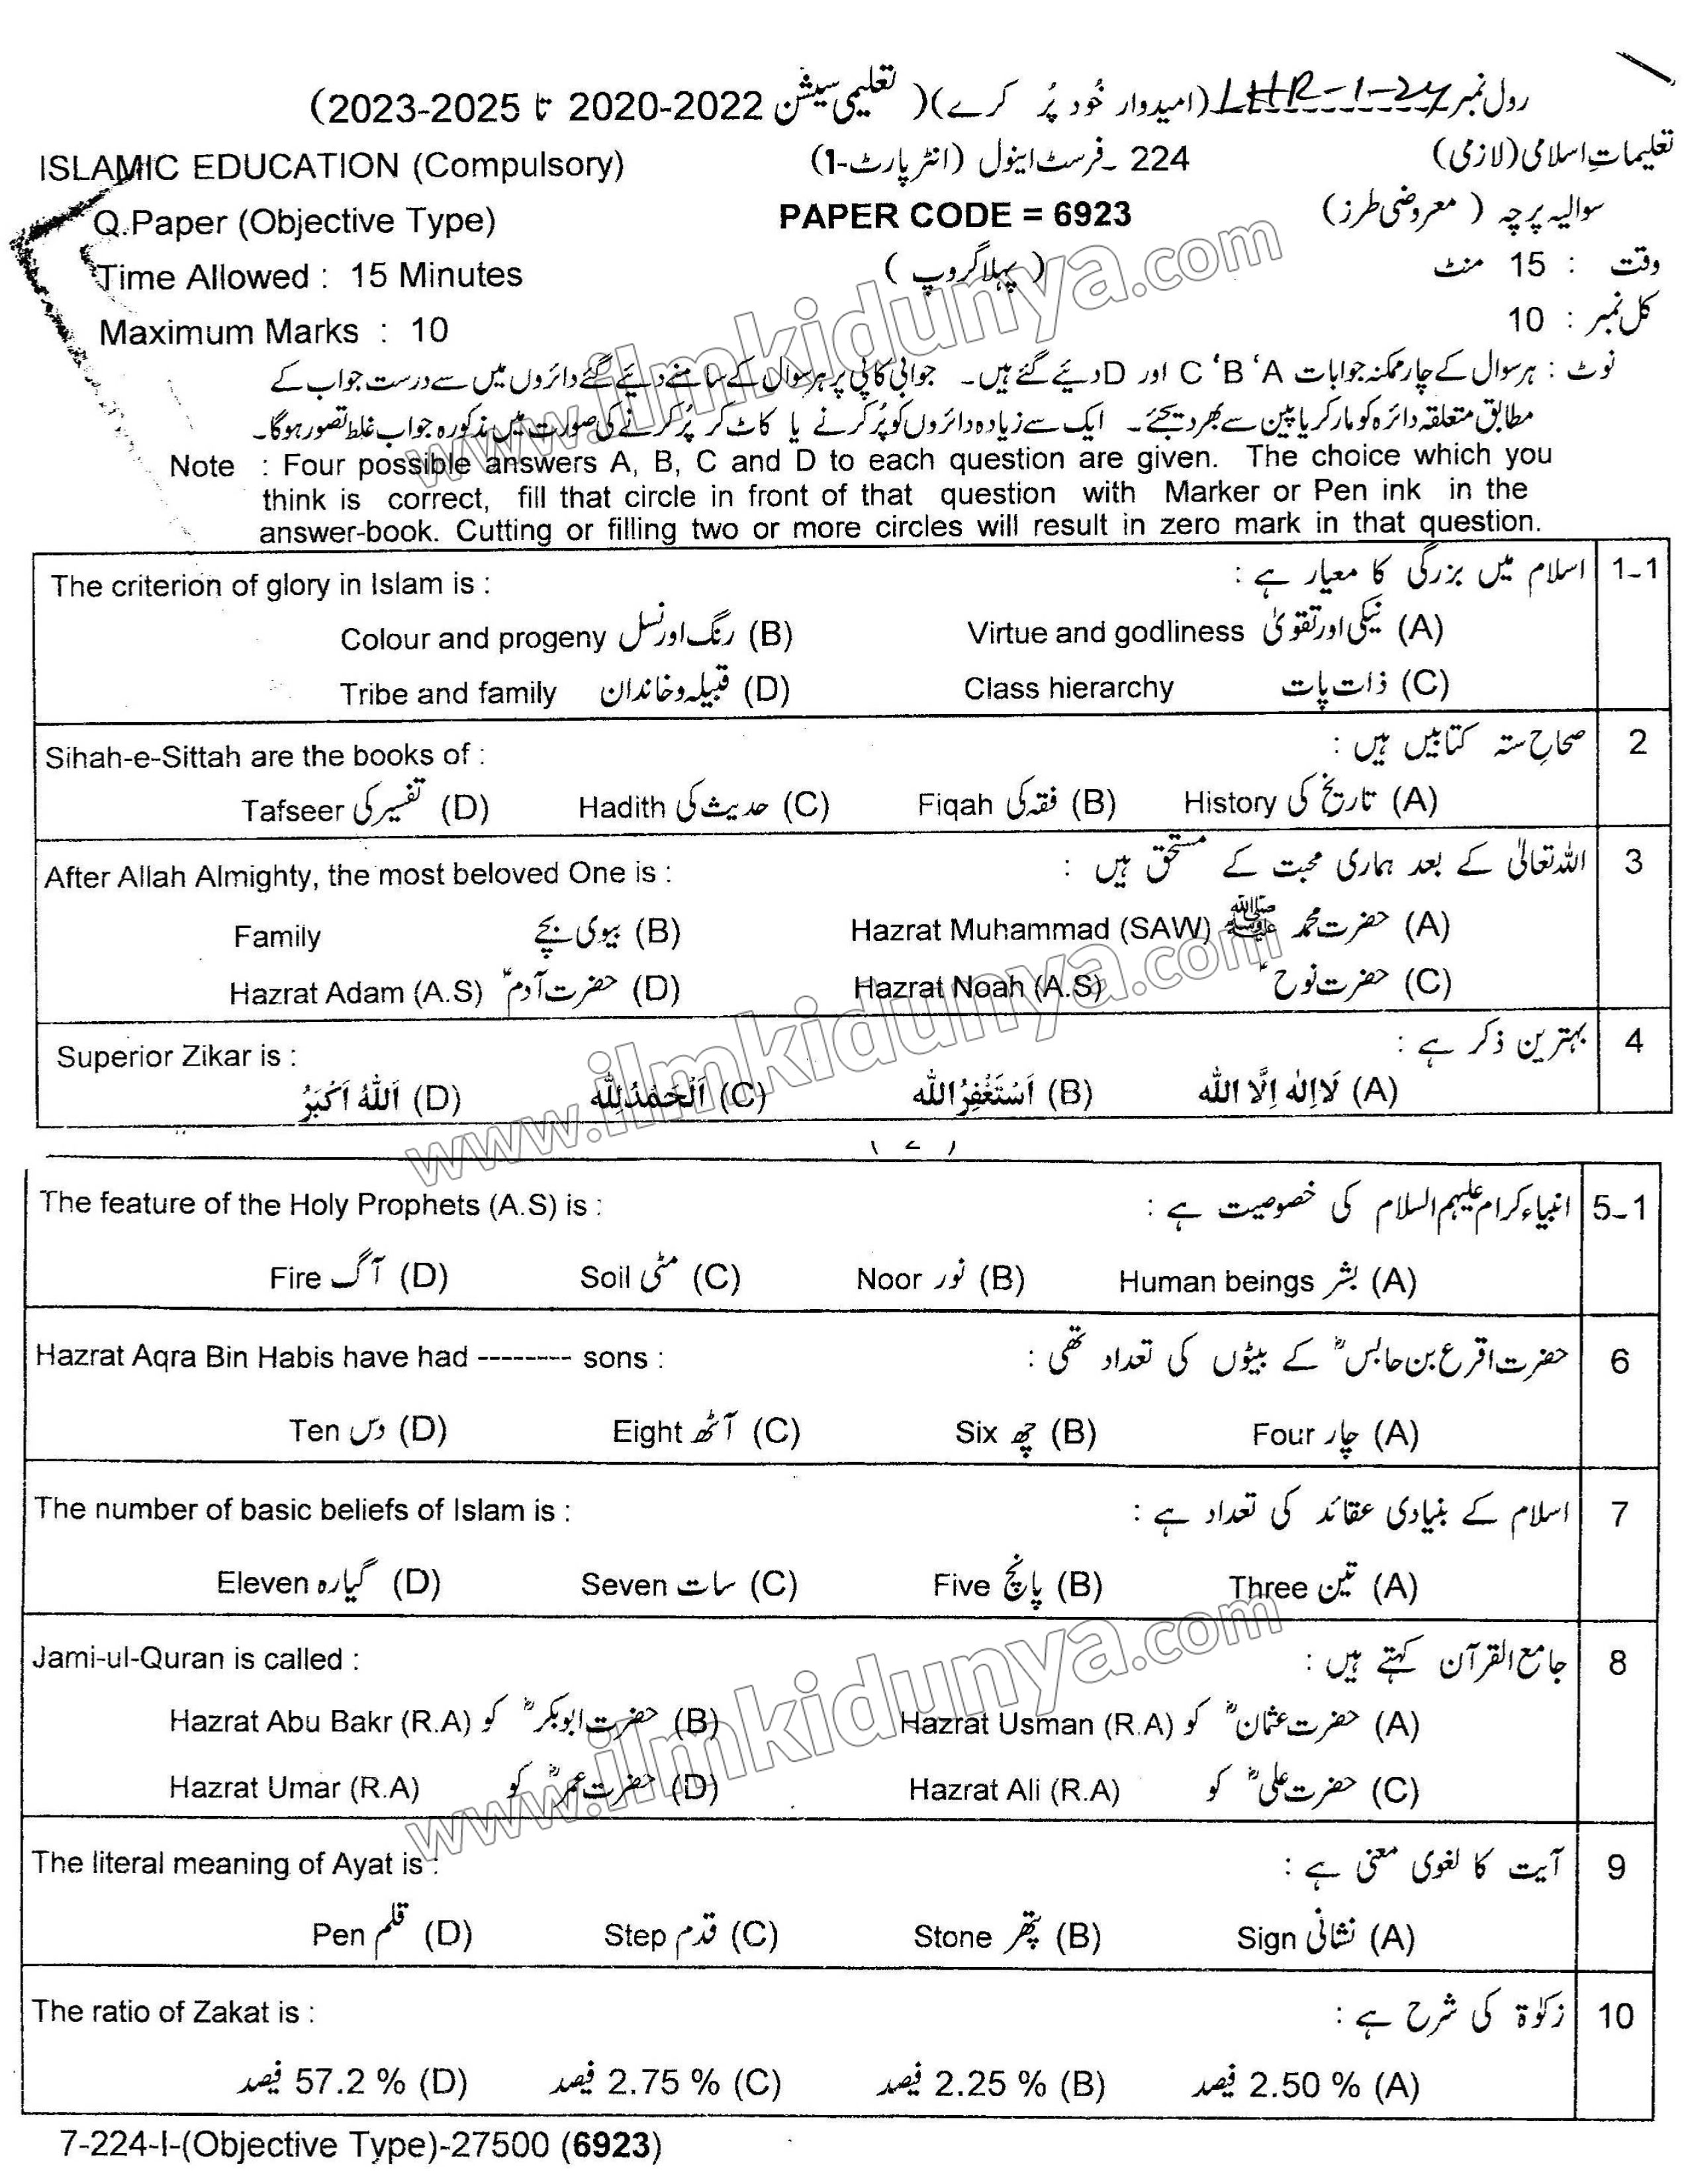 رول نمبر LHR-1-24 (امیدوار خُود پُر کرے) ( تعلیمی سیشن 2022-2020 تا 2025-2023)
ISLAMIC EDUCATION (Compulsory) 224 ۔فرسٹ اینول (انٹر پارٹ-1) تعلیماتِ اسلامی (لازمی)
Q.Paper (Objective Type) PAPER CODE = 6923 سوالیہ پرچہ ( معروضی طرز)
Time Allowed : 15 Minutes (پہلا گروپ ) وقت : 15 منٹ
Maximum Marks : 10 کل نمبر : 10
نوٹ : ہر سوال کے چار ممکنہ جوابات C ‘B ‘A اور D دئیے گئے ہیں۔ جوابی کاپی پر ہر سوال کے سامنے دئیے گئے دائروں میں سے درست جواب کے
مطابق متعلقہ دائرہ کو مارکر یا پین سے بھر دیجئے۔ ایک سے زیادہ دائروں کو پُر کرنے یا کاٹ کر پُر کرنے کی صورت میں مذکورہ جواب غلط تصور ہوگا۔
Note : Four possible answers A, B, C and D to each question are given. The choice which you
think is correct, fill that circle in front of that question with Marker or Pen ink in the
answer-book. Cutting or filling two or more circles will result in zero mark in that question.
The criterion of glory in Islam is : اسلام میں بزرگی کا معیار ہے : 1-1
Colour and progeny رنگ اور نسل (B) Virtue and godliness نیکی اور تقویٰ (A)
Tribe and family قبیلہ و خاندان (D) Class hierarchy ذات پات (C)
Sihah-e-Sittah are the books of : صحاحِ ستہ کتابیں ہیں : 2
Tafseer تفسیر کی (D) Hadith حدیث کی (C) Fiqah فقہ کی (B) History تاریخ کی (A)
After Allah Almighty, the most beloved One is : اللہ تعالیٰ کے بعد ہماری محبت کے مستحق ہیں : 3
Family بیوی بچے (B) Hazrat Muhammad (SAW) حضرت محمد ﷺ (A)
Hazrat Adam (A.S) حضرت آدمؑ (D) Hazrat Noah (A.S) حضرت نوحؑ (C)
Superior Zikar is : بہترین ذکر ہے : 4
اَللّٰہُ اَکْبَرُ (D) اَلْحَمْدُلِلّٰہِ (C) اَسْتَغْفِرُاللّٰہ (B) لَااِلٰہَ اِلَّا اللّٰہ (A)
The feature of the Holy Prophets (A.S) is : انبیاء کرام علیہم السلام کی خصوصیت ہے : 5-1
Fire آگ (D) Soil مٹی (C) Noor نور (B) Human beings بشر (A)
Hazrat Aqra Bin Habis have had -------- sons : حضرت اقرع بن حابسؓ کے بیٹوں کی تعداد تھی : 6
Ten دس (D) Eight آٹھ (C) Six چھ (B) Four چار (A)
The number of basic beliefs of Islam is : اسلام کے بنیادی عقائد کی تعداد ہے : 7
Eleven گیارہ (D) Seven سات (C) Five پانچ (B) Three تین (A)
Jami-ul-Quran is called : جامع القرآن کہتے ہیں : 8
Hazrat Abu Bakr (R.A) حضرت ابوبکرؓ کو (B) Hazrat Usman (R.A) حضرت عثمانؓ کو (A)
Hazrat Umar (R.A) حضرت عمرؓ کو (D) Hazrat Ali (R.A) حضرت علیؓ کو (C)
The literal meaning of Ayat is : آیت کا لغوی معنی ہے : 9
Pen قلم (D) Step قدم (C) Stone پتھر (B) Sign نشانی (A)
The ratio of Zakat is : زکوٰۃ کی شرح ہے : 10
57.2 % فیصد (D) 2.75 % فیصد (C) 2.25 % فیصد (B) 2.50 % فیصد (A)
7-224-I-(Objective Type)-27500 (6923)
www.ilmkidunya.com
www.ilmkidunya.com
www.ilmkidunya.com